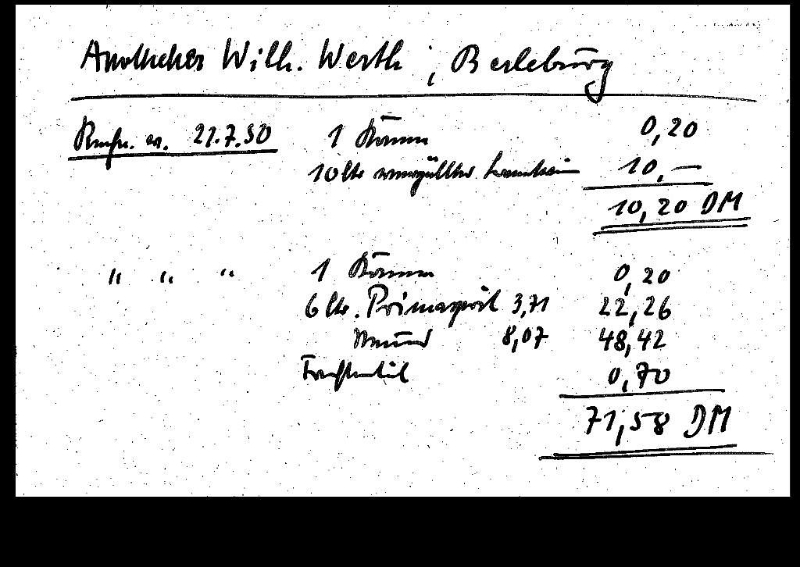 Apotheker Wilh. Werth, Berleburg
Rechn. v. 21.7.50 1 Kanne 0,20
10 ltr 10,—
10,20 DM
" " " 1 Kanne 0,20
6 ltr. Primasprit 3,71 22,26
8,07 48,42
Frachtanteil 0,70
71,58 DM